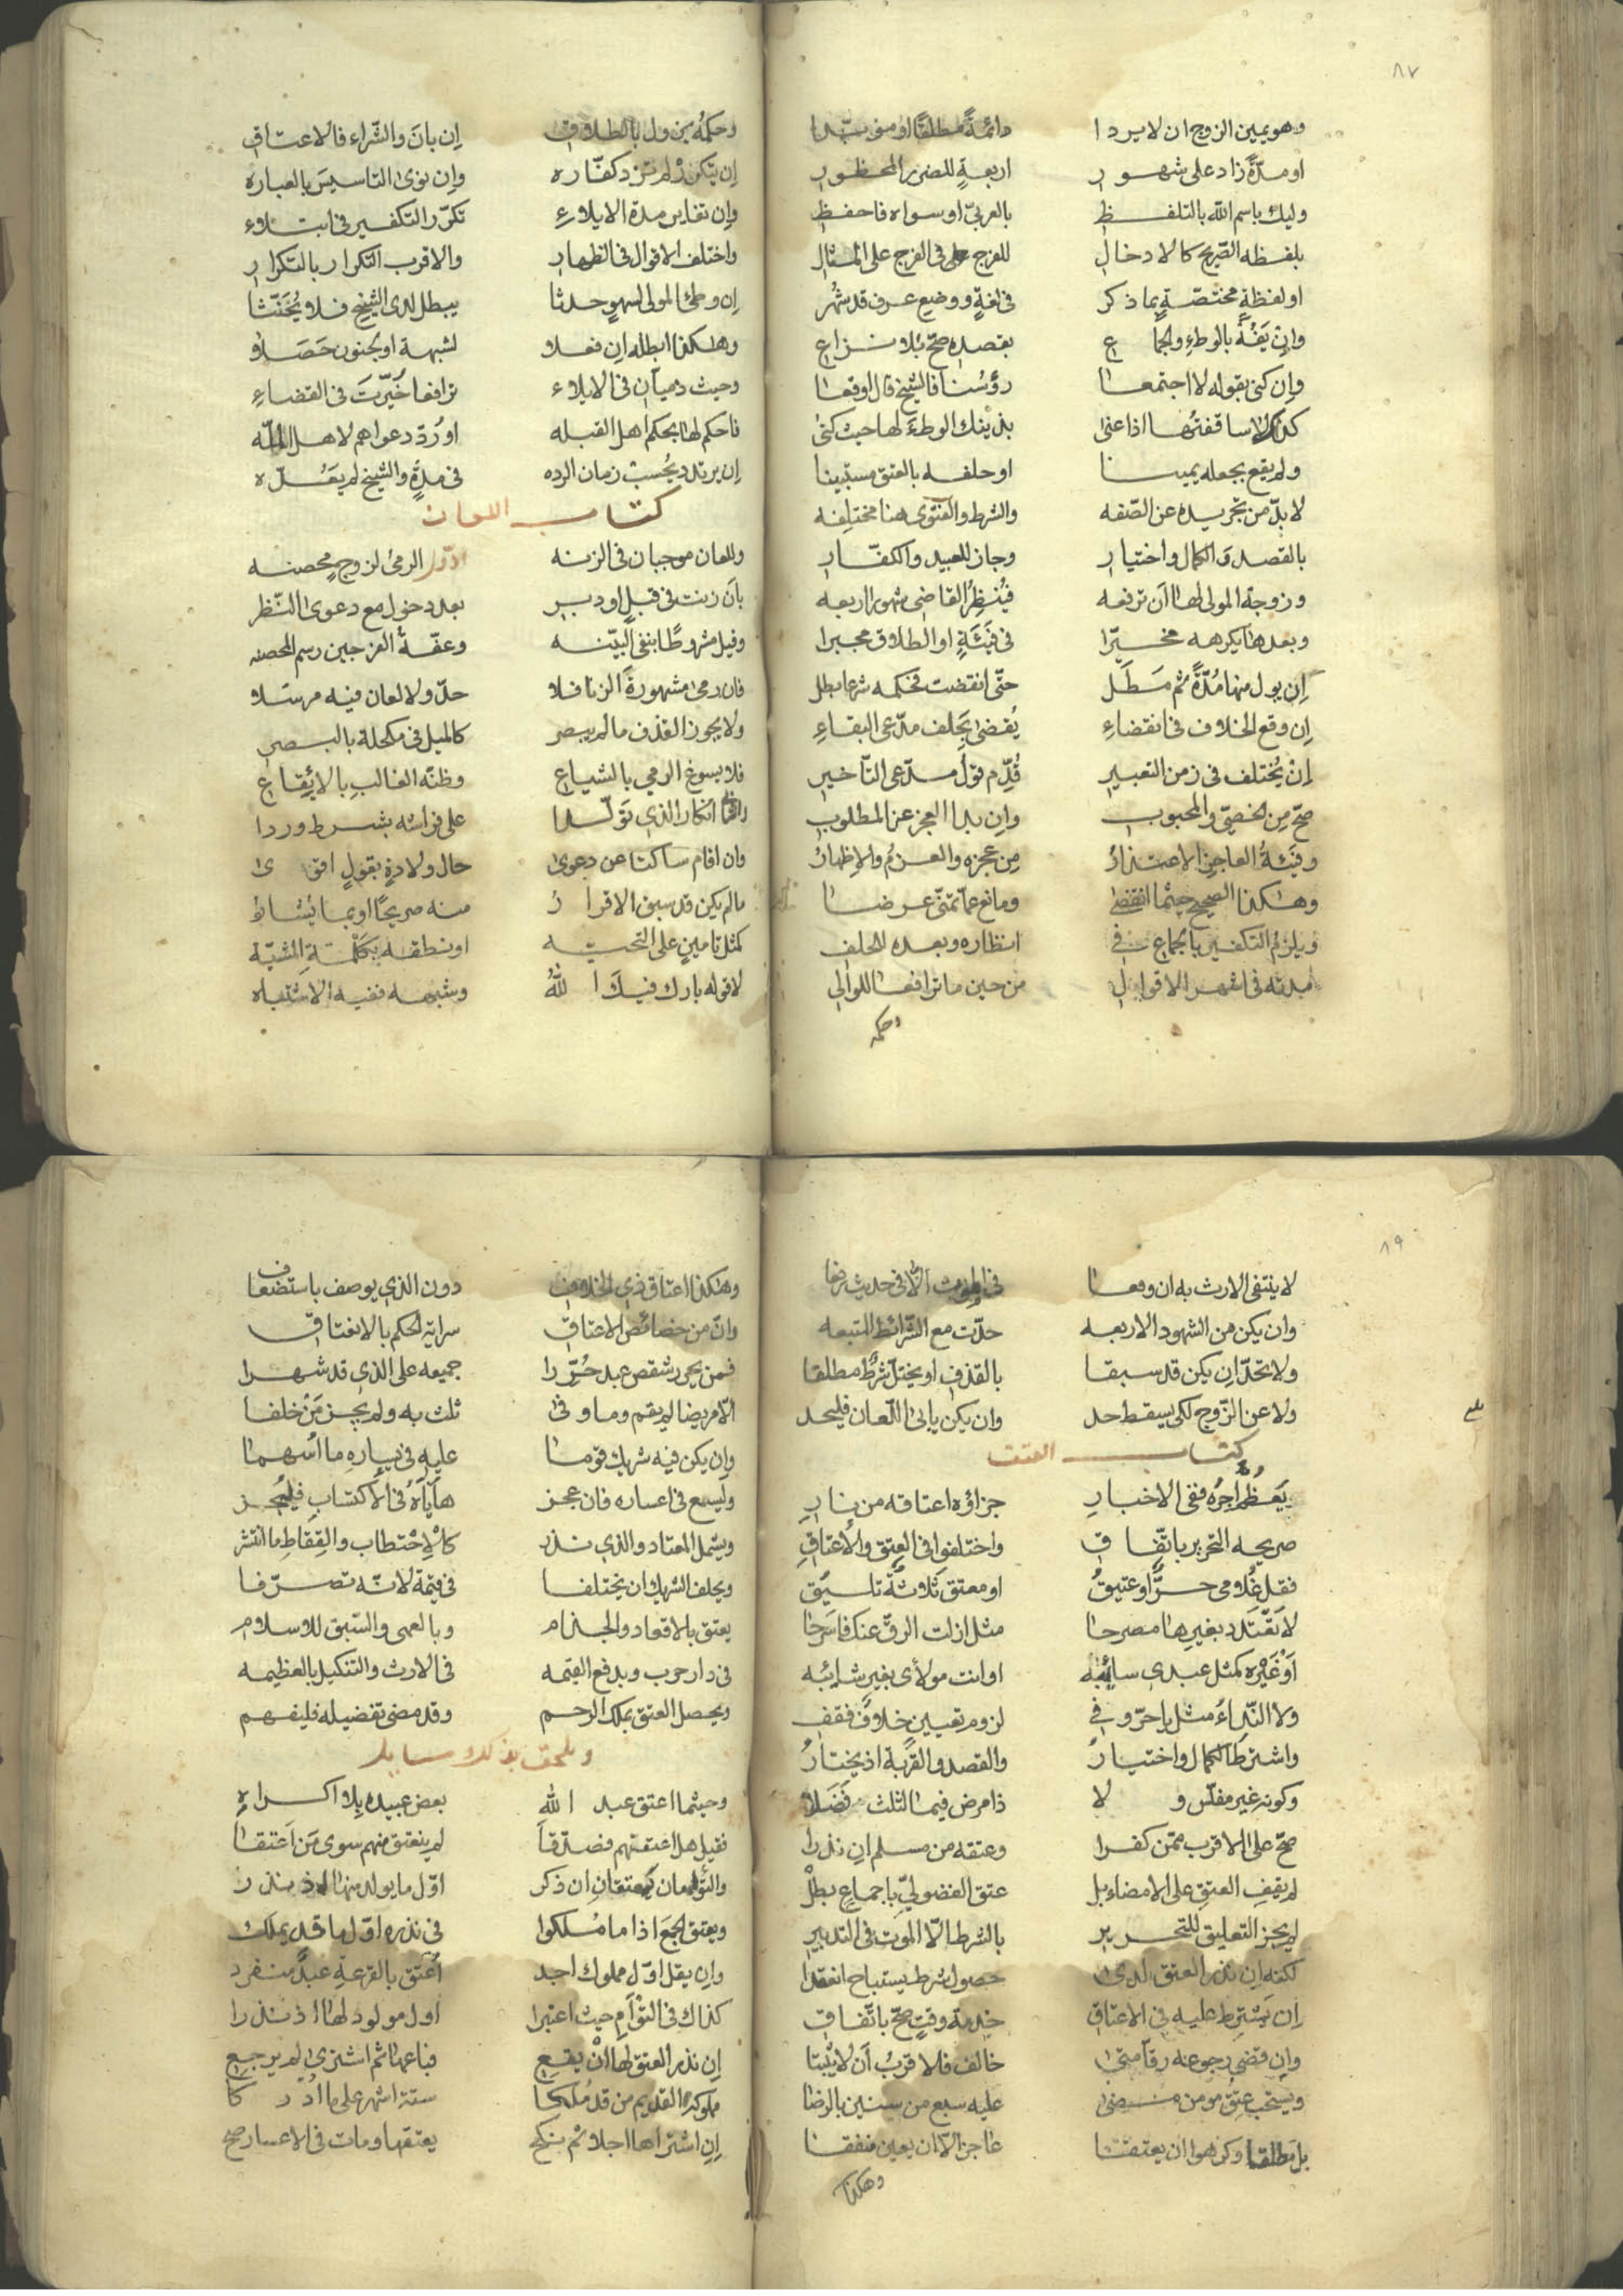 ٨٧
وهو يمين الزوج ان لا يردا دائمة مطلقا او مؤبدا
او مدة زاد على شهور اربعة للضرر المحظور
وليك باسم الله بالتلفظ بالعربي او سواه فاحفظ
بلفظه الصريح كالادخال للفرج في الفرج على المثال
او لفظة مختصة بما ذكر في لغة ووضع عرف قد شهر
وإن يفه بالوطء والجماع بقصده صح بلا نزاع
وإن كنى بقوله لا اجتمعا رؤسنا فالشيخ قال اوقعا
كذا لا ساقفتها اذا عنى بذينك الوطء لها حيث كنى
ولم يقع بجعله يمينا او حلفه بالعتق مستبينا
لا بد من تجريده عن الصفه والشرط والفتوى هنا مختلفه
بالقصد والكمال واختيار وجاز للعبيد والكفار
وزوجة المولى لها ان ترفعه فينظر القاضي شهورا اربعه
وبعدها يكرهه مخيرا في فيئة او الطلاق مجبرا
إن يول منها مدة ثم مطل حتى انقضت فحكمه شرعا بطل
إن وقع الخلاف في انقضاء يقضى بحلف مدعي البقاء
إن يختلف في زمن التعبير قدم قول مدعي التأخير
صح من الخصي والمجبوب وان بدا العجز عن المطلوب
وفيئة العاجز الاعتذار من عجزه والعزم والإظهار
وهكذا الصحيح حيثما انقضى ومانع عما تمنى عرضا
ويلزم التكفير بالجماع في انظاره وبعده للحلف
مدته في اشهر الاقوال من حين ما ترافعا للوالي
وحكمه
وحكمه يزول بالطلاق إن بان والشراء فالاعتاق
إن يتكرر لم تزد كفاره وإن نوى التاسيس بالعباره
وإن تغاير مدة الايلاء تكرر التكفير في ابتلاء
واختلف الاقوال في الظهار والاقرب التكرار بالتكرار
إن وطئ المولى لسهو حدثا يبطل لدى الشيخ فلا يحنثا
وهكذا ابطله ان فعلا لشبهة او لجنون حصلا
وحيث ذميان في الايلاء ترافعا خيرت في القضاء
فاحكم لها بحكم اهل القبله او رد دعواهم لاهل المله
إن يرتدد يحسب زمان الرده في مدة والشيخ لم يعده
كتاب اللعان
وللعان موجبان في الزنه اول الرمي لزوج محصنه
بأن زنت في قبل او دبر بعد دخول مع دعوى النظر
وقيل مشروطا بنفي البينه وعفة الفرجين رسم المحصنه
فان رمى مشهورة الزنا فلا حد ولا لعان فيه مرسلا
ولا يجوز القذف ما لم يبصر كالميل في مكحلة بالبصر
فلا يسوغ الرمي بالشياع وظنه الغالب بالايقاع
انكار الذي تولدا على فراشه بشرط وردا
وان اقام ساكتا عن دعوى حال ولادة بقول اقوى
ما لم يكن قد سبق الاقرار منه صريحا او بما يشار
كمثل تامين على التحيه او نطقه بكلمة المشيه
لا قوله بارك فيك الله وشبهه ففيه الاشتباه
٨٩
لا ينتفي الارث به ان وقعا في الموت الا في حديث رفعا
وان يكن من الشهود الاربعه حدت مع الشرائط المتبعه
ولا تحد ان يكن قد سبقا بالقذف او يختل شرط مطلقا
ولاعن الزوج لكي يسقط حد وان يكن يابى اللعان فليحد
كتاب العتق
يعظم اجره ففي الاخبار جزاؤه اعتاقه من نار
صريحه التحرير باتفاق واختلفوا في العتق والاعتاق
فقل غلامي حر او عتيق او معتق ثلاثة تليق
لا تقتدد بغيرها مصرحا مثل ازلت الرق عنك فاسرحا
او غيره كمثل عبدي سائبه او انت مولاي بغير شائبه
ولا النداء مثل يا حر وفي لزوم تعيين خلاف فقف
واشترط الكمال واختيار والقصد والقربة اذ يختار
وكونه غير مفلس ولا ذا مرض فيما الثلث فضلا
صح على الاقرب ممن كفرا وعتقه من مسلم ان نذرا
لم يقف العتق على الامضاء بل عتق الفضولي باجماع بطل
لم يجز التعليق للتحرير بالشرط الا الموت في التدبير
لكنه ان نذر العتق لدى حصول شرط يستباح انعقدا
إن يشترط عليه في الاعتاق خدمة وقت صح باتفاق
وإن قضى رجوعه رقا متى خالف فلا قرب أن لا يثبتا
ويستحب عتق مومن مضى عليه سبع من سنين بالرضا
بل مطلقا وكرهوا ان يعتقا عاجزا الا ان يعين منفقا
وهكذا
وهكذا اعتاق ذي الخلاف دون الذي يوصف باستضعاف
وان من خصائص الاعتاق سراية الحكم بالانعتاق
فمن يحرر شقص عبد حررا جميعه على الذي قد شهرا
الا مريضا لم يقم وما وفى ثلث به ولم يجز من خلفا
وإن يكن فيه شريك قوما عليه في يساره ما اسهما
وليسع في اعساره فان عجز هاياه في الاكتساب فليجز
ويشمل المعتاد والذي ندر كالاحتطاب والتقاط ما انتثر
ويحلف الشريك ان يختلفا في قيمة لانه تصرفا
يعتق بالاقعاد والجذام وبالعمى والسبق للاسلام
في دار حرب وبدفع القيمه في الارث والتنكيل بالعظيمه
ويحصل العتق بملك الرحم وقد مضى تفضيله فليفهم
ويلحق بذلك مسايل
وحيثما اعتق عبد الله بعض عبيده بلا اكراه
فقيل هل اعتقتهم فصدقا لم ينعتق منهم سوى من اعتقا
والتوأمان يعتقان ان ذكر اول ما يولد منها اذ نذر
ويعتق الجمع اذا ما ملكوا في نذره اول ما قد يملك
وإن يقل اول مملوك اجد أعتق بالقرعة عبد منفرد
كذاك في التوأم حيث اعتبرا اول مولود لها اذ نذرا
إن نذر العتق لها ان يقع فباعها ثم اشترى لم يرجع
مملوكه القديم من قد ملكا ستة اشهر على ما ادركا
إن اشتراها اجلا ثم نكح يعتقها ومات في الاعسار صح